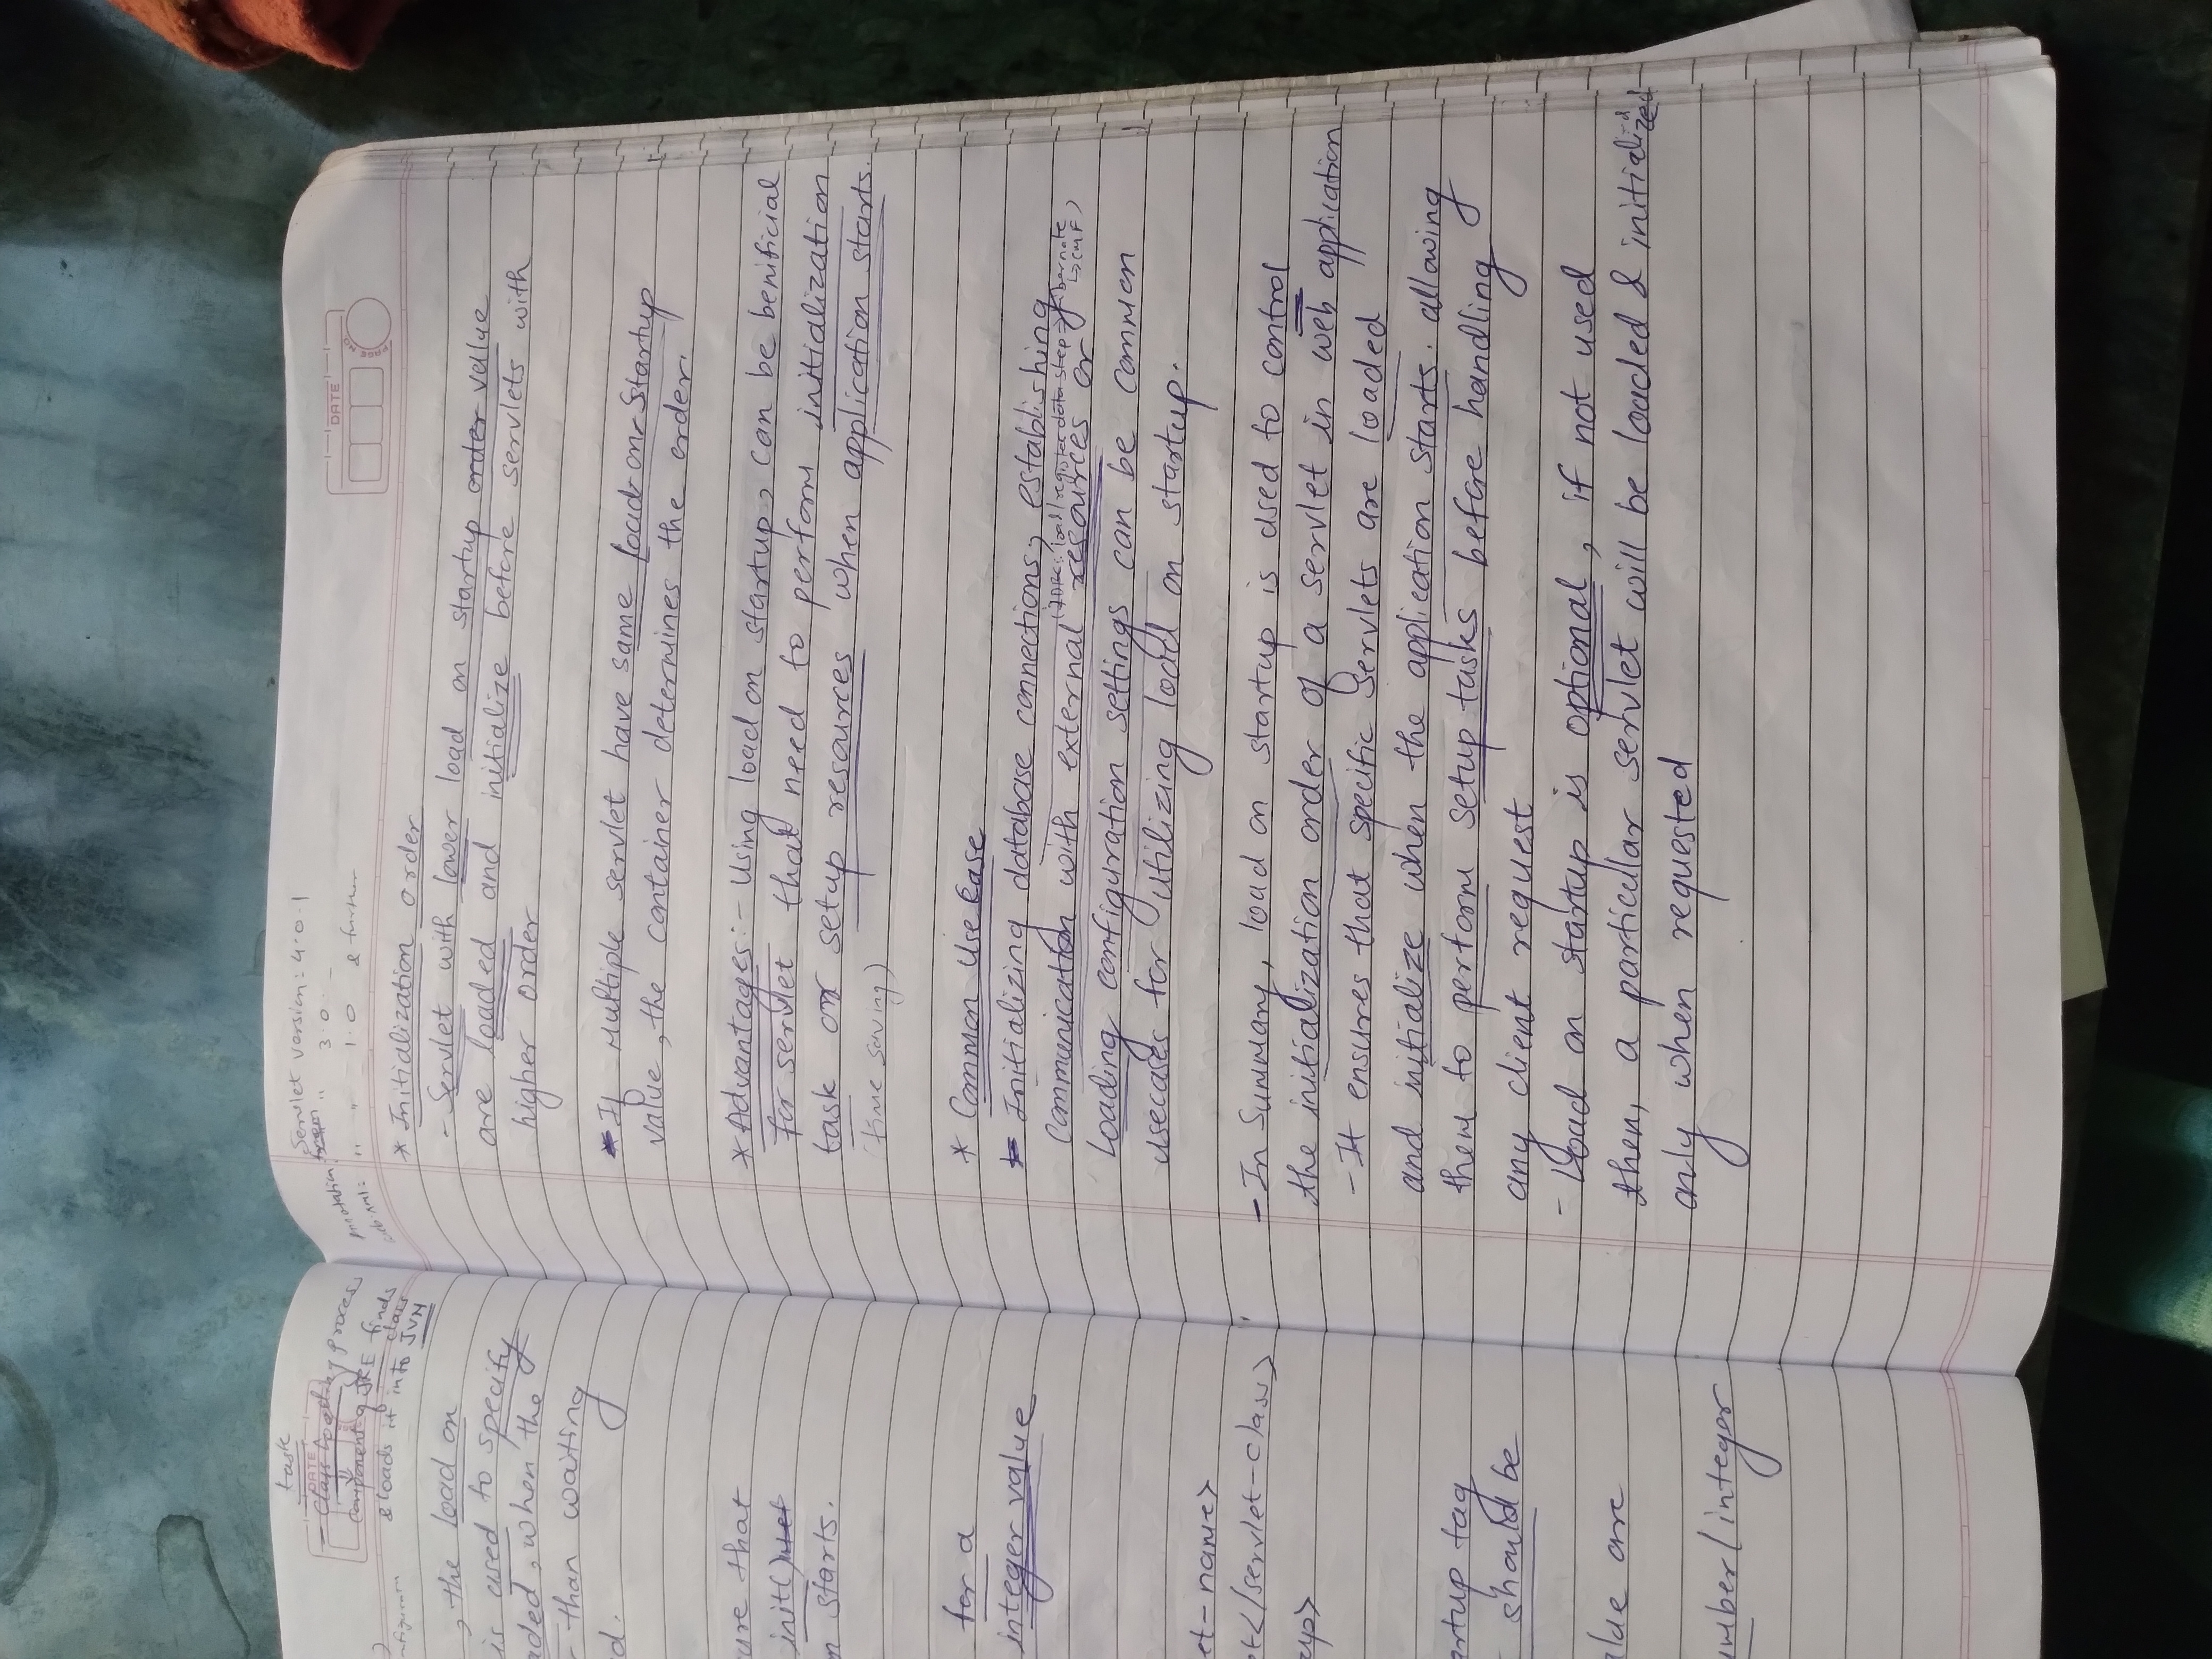 task
DATE
- Class Loading process
component of JRE finds
& loads it into class
JVM
, the load on
is used to specify
aded, when the
than waiting
d.
ure that
init()
n starts.
for a
integer value
et-name>
et</servlet-class>
up>
artup tag
should be
alue are
umber/integer
Servlet version: 4.0.1
Annotation from " 3.0 -
web.xml: " " 1.0 & further
DATE
PAGE NO.
* Initialization order
- Servlet with lower load on startup order vellue
are loaded and initialize before servlets with
higher order
* If Multiple servlet have same load-on-Startup
value, the container determines the order.
* Advantages:- Using load on startup, can be benificial
for servlet that need to perform initialization
task or setup resources when application starts.
(time saving)
* Common Use Case
Initializing database connections, establishing
(JDBC: load/register data step → hibernate
↳ CMF)
communication with external resources or
Loading configuration settings can be common
usecases for utilizing load on startup.
- In Summary, load on startup is used to control
the initialization order of a servlet in web application
- It ensures that specific servlets are loaded
and initialize when the application starts. allowing
them to perform setup tasks before handling
any client request
- Load on startup is optional, if not used
then, a particular servlet will be loaded & initialized
only when requested